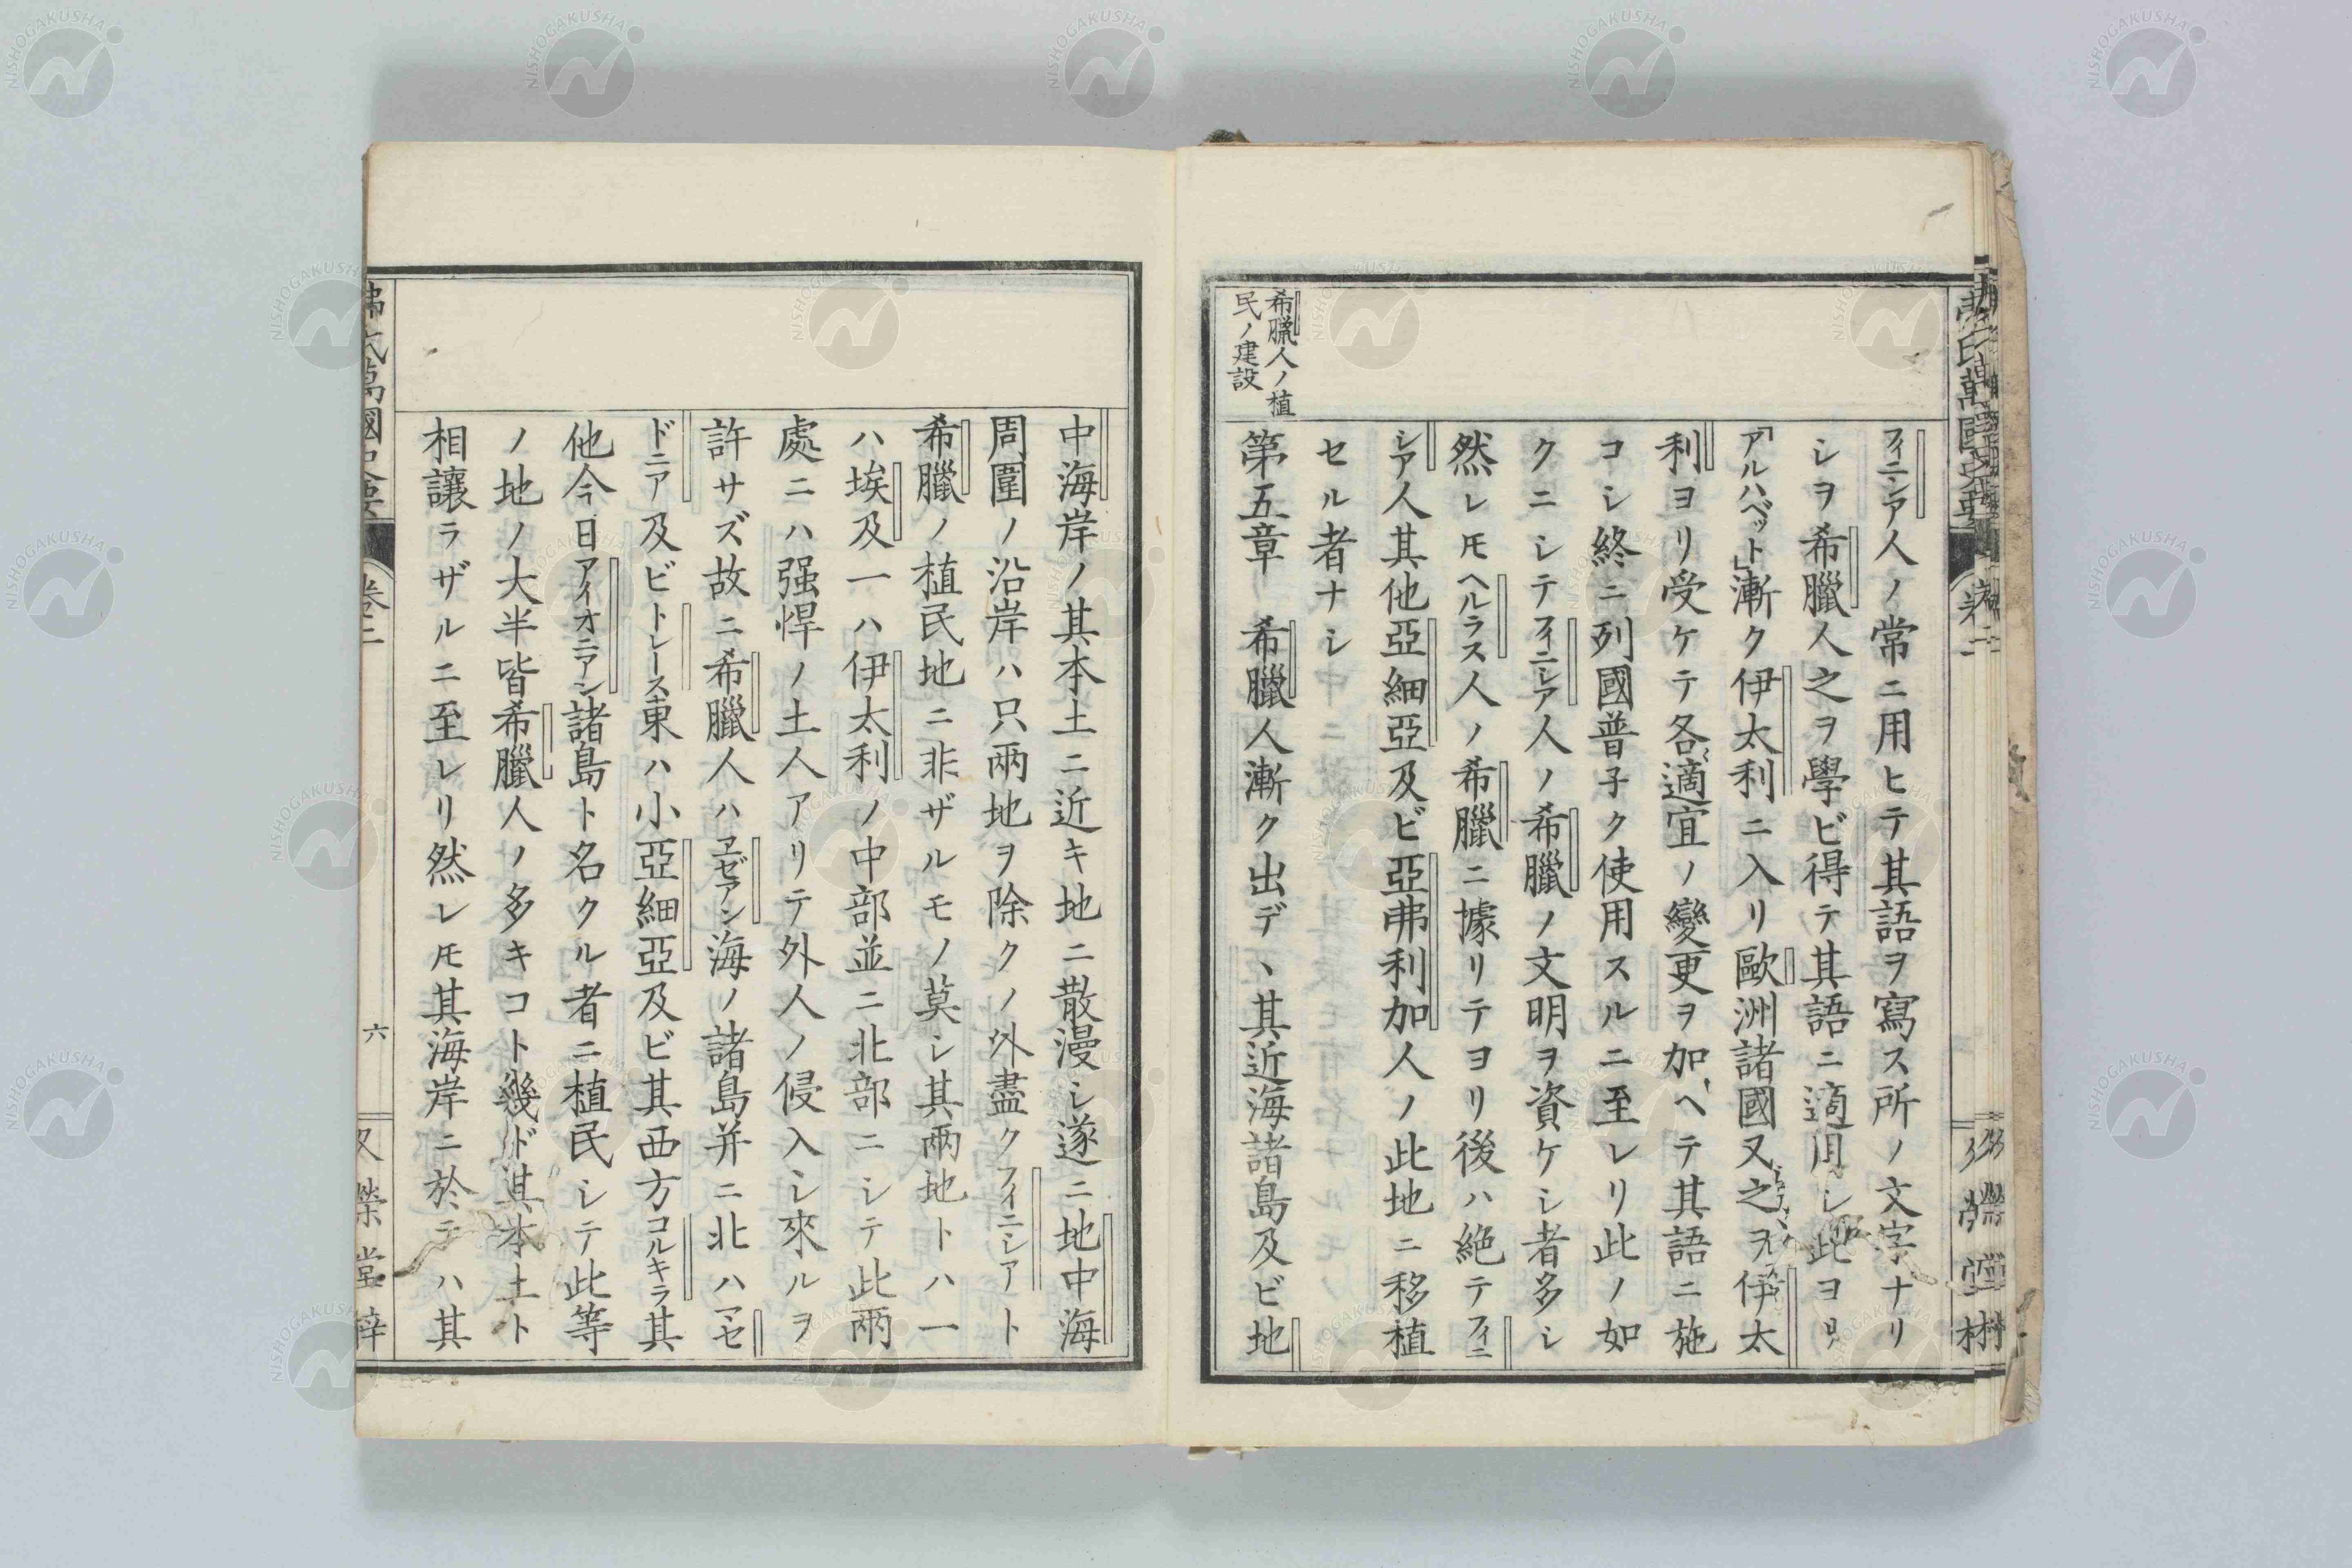 希臘人ノ植
民ノ建設
フィニシア人ノ常ニ用ヒテ其語ヲ寫ス所ノ文字ナリ
シヲ希臘人之ヲ學ビ得テ其語ニ適用シ此ヨリ
「アルハベット」漸ク伊太利ニ入リ歐洲諸國又之ヲ伊太
利ヨリ受ケテ各適宜ノ變更ヲ加ヘテ其語ニ施
コシ終ニ列國普子ク使用スルニ至レリ此ノ如
クニシテフィニシア人ノ希臘ノ文明ヲ資ケシ者多シ
然レ𪜈ヘルラス人ノ希臘ニ據リテヨリ後ハ絶テフィニ
シア人其他亞細亞及ビ亞弗利加人ノ此地ニ移植
セル者ナシ
第五章 希臘人漸ク出デヽ其近海諸島及ビ地
中海岸ノ其本土ニ近キ地ニ散漫シ遂ニ地中海
周圍ノ沿岸ハ只兩地ヲ除クノ外盡クフィニシアト
希臘ノ植民地ニ非ザルモノ莫シ其兩地トハ一
ハ埃及一ハ伊太利ノ中部並ニ北部ニシテ此兩
處ニハ强悍ノ土人アリテ外人ノ侵入シ來ルヲ
許サズ故ニ希臘人ハヱゼアン海ノ諸島并ニ北ハマセ
ドニア及ビトレース東ハ小亞細亞及ビ其西方コルキラ其
他今日アイオニアン諸島ト名クル者ニ植民シテ此等
ノ地ノ大半皆希臘人ノ多キコト幾ド其本土ト
相讓ラザルニ至レリ然レ𪜈其海岸ニ於テハ其
卷二
六
NISHOGAKUSHA